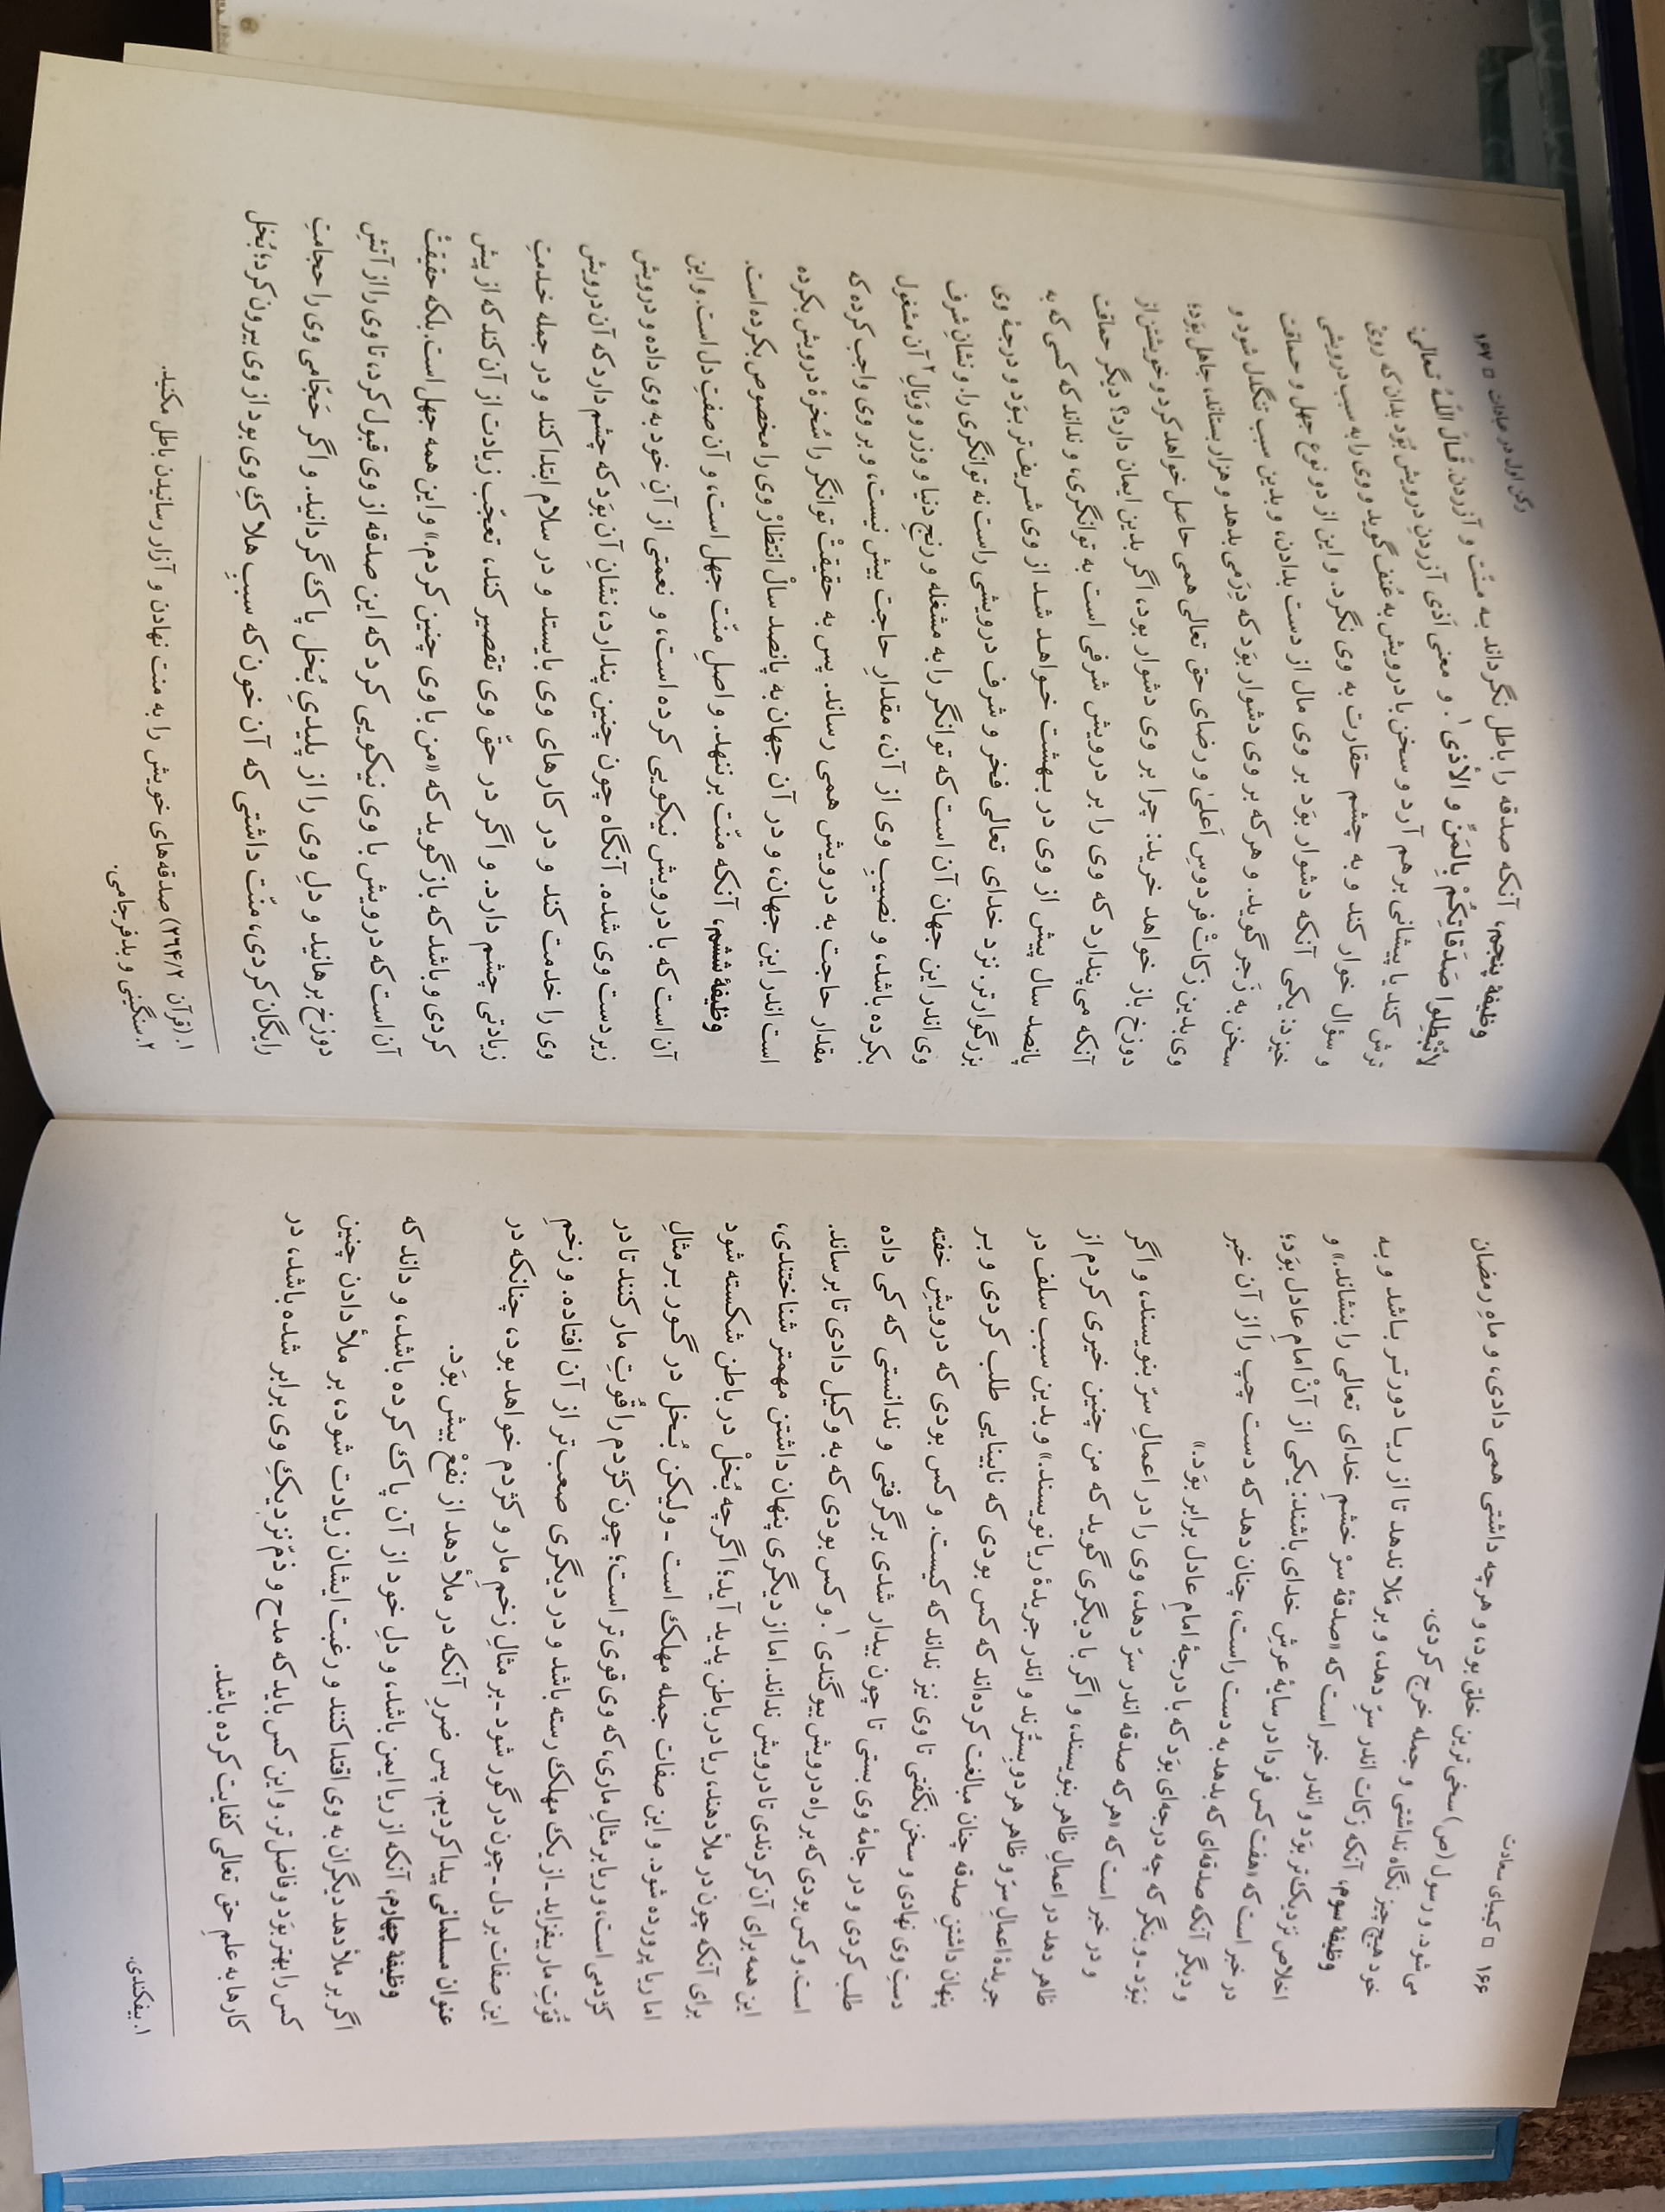 ۱۶۶ □ کیمیای سعادت
می‌شود. و رسول (ص) سخی‌ترین خلق بود، و هرچه داشتی همی دادی، و ماهِ رمضان
خود هیچ چیز نگاه نداشتی و جمله خرج کردی.
وظیفهٔ سوم، آنکه زکات اندر سرّ دهد، و بر مَلا ندهد تا از ریا دورتر باشد و به
اخلاص نزدیک‌تر بوَد و اندر خبر است که «صدقهٔ سرْ خشمِ خدای تعالی را بنشاند.» و
در خبر است که «هفت کس فردا در سایهٔ عرشِ خدای باشند: یکی از آنْ امامِ عادل بوَد؛
و دیگر آنکه صدقه‌ای که بدهد به دست راست، چنان دهد که دست چپ را از آن خبر
نبوَد ـ و بنگر که چه درجه‌ای بوَد که با درجهٔ امامِ عادل برابر بوَد.»
و در خبر است که «هر که صدقه اندر سرّ دهد، وی را در اعمالِ سرّ بنویسند، و اگر
ظاهر دهد در اعمالِ ظاهر بنویسند، و اگر با دیگری گوید که من چنین خیری کردم از
جریدهٔ اعمالِ سرّ و ظاهر هر دو بستُرند و اندر جریدهٔ ریا نویسند.» و بدین سبب سلف در
پنهان داشتنِ صدقه چنان مبالغت کرده‌اند که کس بودی که نابینایی طلب کردی و بر
دستِ وی نهادی و سخن نگفتی تا وی نیز نداند که کیست. و کس بودی که درویشِ خفته
طلب کردی و در جامهٔ وی بستی تا چون بیدار شدی برگرفتی و ندانستی که کی داده
است. و کس بودی که بر راه درویش بیوگندی۱. و کس بودی که به وکیل دادی تا برساند.
این همه برای آن کردندی تا درویش نداند. اما از دیگری پنهان داشتن مهمتر شناختندی،
برای آنکه چون در ملأ دهند، ریا در باطن پدید آید؛ اگرچه بُخلْ در باطن شکسته شود
اما ریا پرورده شود. و این صفات جمله مهلک است ـ ولیکن بُخل در گور بر مثالِ
کژدمی است، و ریا بر مثالِ ماری، که وی قوی‌تر است؛ چون کژدم را قُوتِ مار کنند تا در
قُوّتِ مار بیفزاید ـ از یک مهلک رسته باشد و در دیگری صعب‌تر از آن افتاده. و زخمِ
این صفات بر دل ـ چون در گور شود ـ بر مثالِ زخمِ مار و کژدم خواهد بود، چنانکه در
عنوان مسلمانی پیدا کردیم. پس ضررِ آنکه در ملأ دهد از نفعْ بیش بوَد.
وظیفهٔ چهارم، آنکه از ریا ایمن باشد، و دلِ خود از آن پاک کرده باشد، و داند که
اگر بر ملأ دهد دیگران به وی اقتدا کنند و رغبت ایشان زیادت شود، بر ملأ دادن چنین
کس را بهتر بوَد و فاضل‌تر. و این کس باید که مدح و ذمّ نزدیکِ وی برابر شده باشد، در
کارها به علمِ حق تعالی کفایت کرده باشد.
۱. بیفکندی.
رکن اول در عبادات □ ۱۶۷
وظیفهٔ پنجم، آنکه صدقه را باطل نگرداند به منّت و آزردن. قالَ اللّهُ تعالی:
لاتُبْطِلوا صَدَقاتِکُمْ بِالمَنِّ وَ الأذی۱. و معنی اَذی آزردنِ درویش بُوَد بدان که روی
ترش کند یا پیشانی بر هم آرد و سخن با درویش به عُنف گوید و وی را به سبب درویشی
و سؤال خوار کند و به چشم حقارت به وی نگرد. و این از دو نوع جهل و حماقت
خیزد: یکی آنکه دشوار بوَد بر وی مال از دست بدادن، و بدین سبب تنگدل شود و
سخن به زَجر گوید. و هر که بر وی دشوار بوَد که درمی بدهد و هزار بستاند، جاهل بوَد؛
وی بدین زکاتْ فردوسِ اَعلیٰ و رضای حق تعالی همی حاصل خواهد کرد و خویشتن از
دوزخ باز خواهد خرید: چرا بر وی دشوار بود، اگر بدین ایمان دارد؟ دیگر حماقت
آنکه می‌پندارد که وی را بر درویش شرفی است به توانگری، و نداند که کسی که به
پانصد سال پیش از وی در بهشت خواهد شد از وی شریف‌تر بوَد و درجهٔ وی
بزرگوارتر. نزد خدای تعالی فخر و شرف درویشی راست نه توانگری را. و نشانِ شرف
وی اندر این جهان آن است که توانگر را به مشغله و رنجِ دنیا و وِزر و وَبالِ۲ آن مشغول
بکرده باشد، و نصیبِ وی از آن، مقدارِ حاجت بیش نیست، و بر وی واجب کرده که
مقدار حاجت به درویش همی رساند. پس به حقیقتْ توانگر را سُخرهٔ درویش بکرده
است اندر این جهان، و در آن جهان به پانصد سالْ انتظارْ وی را مخصوص بکرده است.
وظیفهٔ ششم، آنکه منّت برننهد. و اصلِ منّت جهل است، و آن صفتِ دل است. و این
آن است که با درویش نیکویی کرده است، و نعمتی از آنِ خود به وی داده و درویش
زیردست وی شده. آنگاه چون چنین پندارد، نشانِ آن بوَد که چشم دارد که آن درویش
وی را خدمت کند و در کارهای وی بایستد و در سلام ابتدا کند و در جمله خدمتِ
زیادتی چشم دارد. و اگر در حقّ وی تقصیر کند، تعجّب زیادت از آن کند که از پیش
کردی و باشد که بازگوید که «من با وی چنین کردم.» و این همه جهل است. بلکه حقیقتْ
آن است که درویش با وی نیکویی کرد که این صدقه از وی قبول کرد، تا وی را از آتشِ
دوزخ برهانید و دلِ وی را از پلیدیِ بُخل پاک گردانید. و اگر حَجّامی وی را حجامتِ
رایگان کردی، منّت داشتی که آن خون که سببِ هلاکِ وی بود از وی بیرون کرد؛ بُخل
۱. (قرآن ۲۶۴/۲) صدقه‌های خویش را به منت نهادن و آزار رسانیدن باطل مکنید.
۲. سنگینی و بدفرجامی.